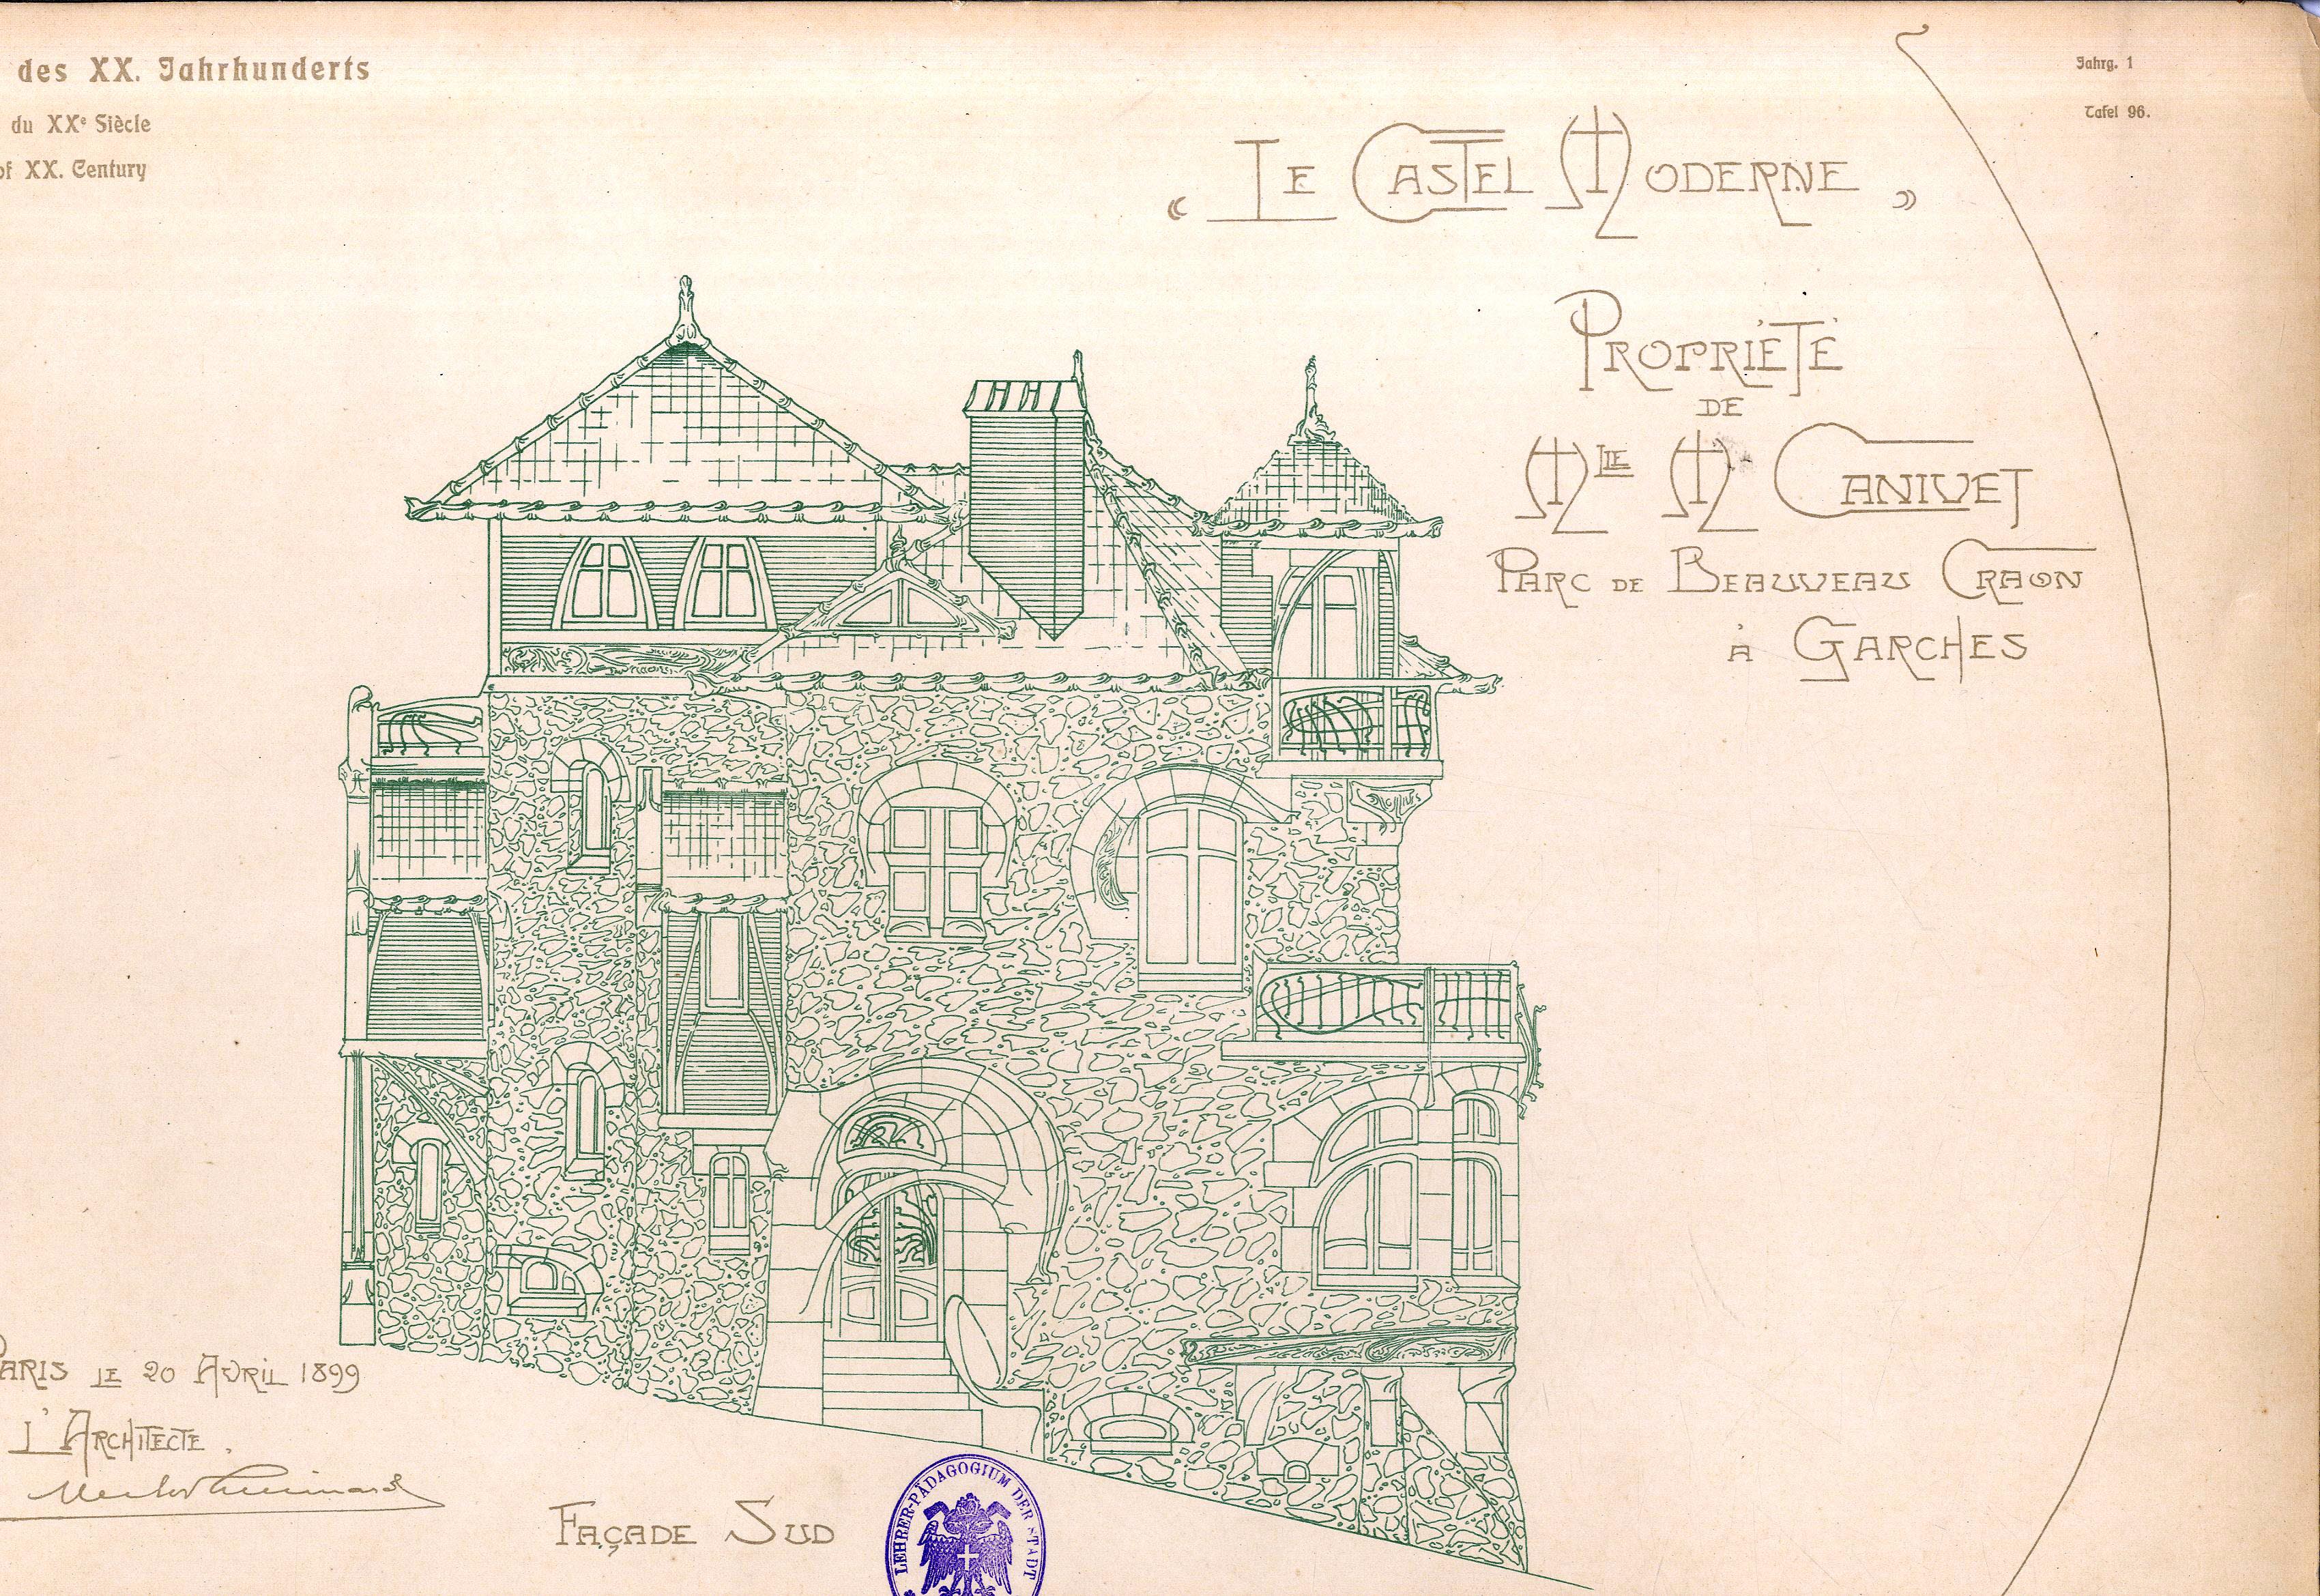 des XX. Jahrhunderts
du XXe Siècle
of XX. Century
Jahrg. 1
Tafel 96.
« Le Castel Moderne »
Propriété
de
Mlle M Canivet
Parc de Beauveau Craon
à Garches
Paris le 20 Avril 1899
L'Architecte.
Hector Guimard
Façade Sud
LEHRER-PÄDAGOGIUM DER STADT